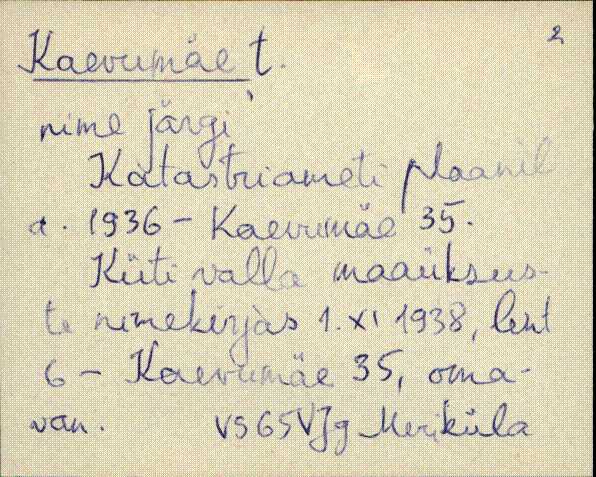 2
Kaevumäe t.
nime järgi
Katastriameti plaanil
a. 1936 - Kaevumäe 35.
Küti valla maaüksus-
te nimekirjas 1. XI 1938, leht
6 - Kaevumäe 35, oma-
van. VS65 VJg Meriküla